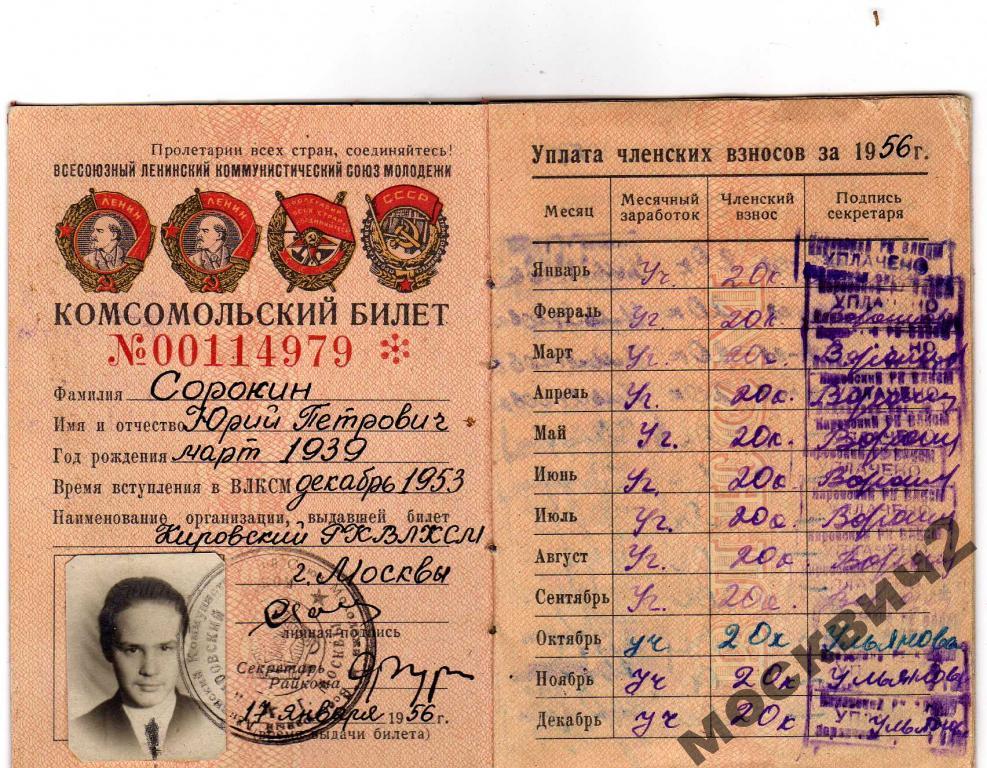 Пролетарии всех стран, соединяйтесь!
ВСЕСОЮЗНЫЙ ЛЕНИНСКИЙ КОММУНИСТИЧЕСКИЙ СОЮЗ МОЛОДЕЖИ
ЛЕНИН ЛЕНИН СССР
КОМСОМОЛЬСКИЙ БИЛЕТ
№00114979
Фамилия Сорокин
Имя и отчество Юрий Петрович
Год рождения март 1939
Время вступления в ВЛКСМ декабрь 1953
Наименование организации, выдавшей билет
Кировский РКВЛКСМ
г. Москвы
личная подпись
Секретарь
Райкома
17 января 1956 г.
(время выдачи билета)
Уплата членских взносов за 1956 г.
Месяц Месячный заработок Членский взнос Подпись секретаря
Январь Уч. 20к. УПЛАЧЕНО
Февраль Уг. 20к.
Март Уг. 20к.
Апрель Уг. 20к.
Май Уг. 20к.
Июнь Уг. 20к.
Июль Уг. 20к.
Август Уг. 20к.
Сентябрь Уг. 20к.
Октябрь уч 20к Ульянова
Ноябрь уч 20к Ульянова
Декабрь уч 20к
МОСКВИЧ2